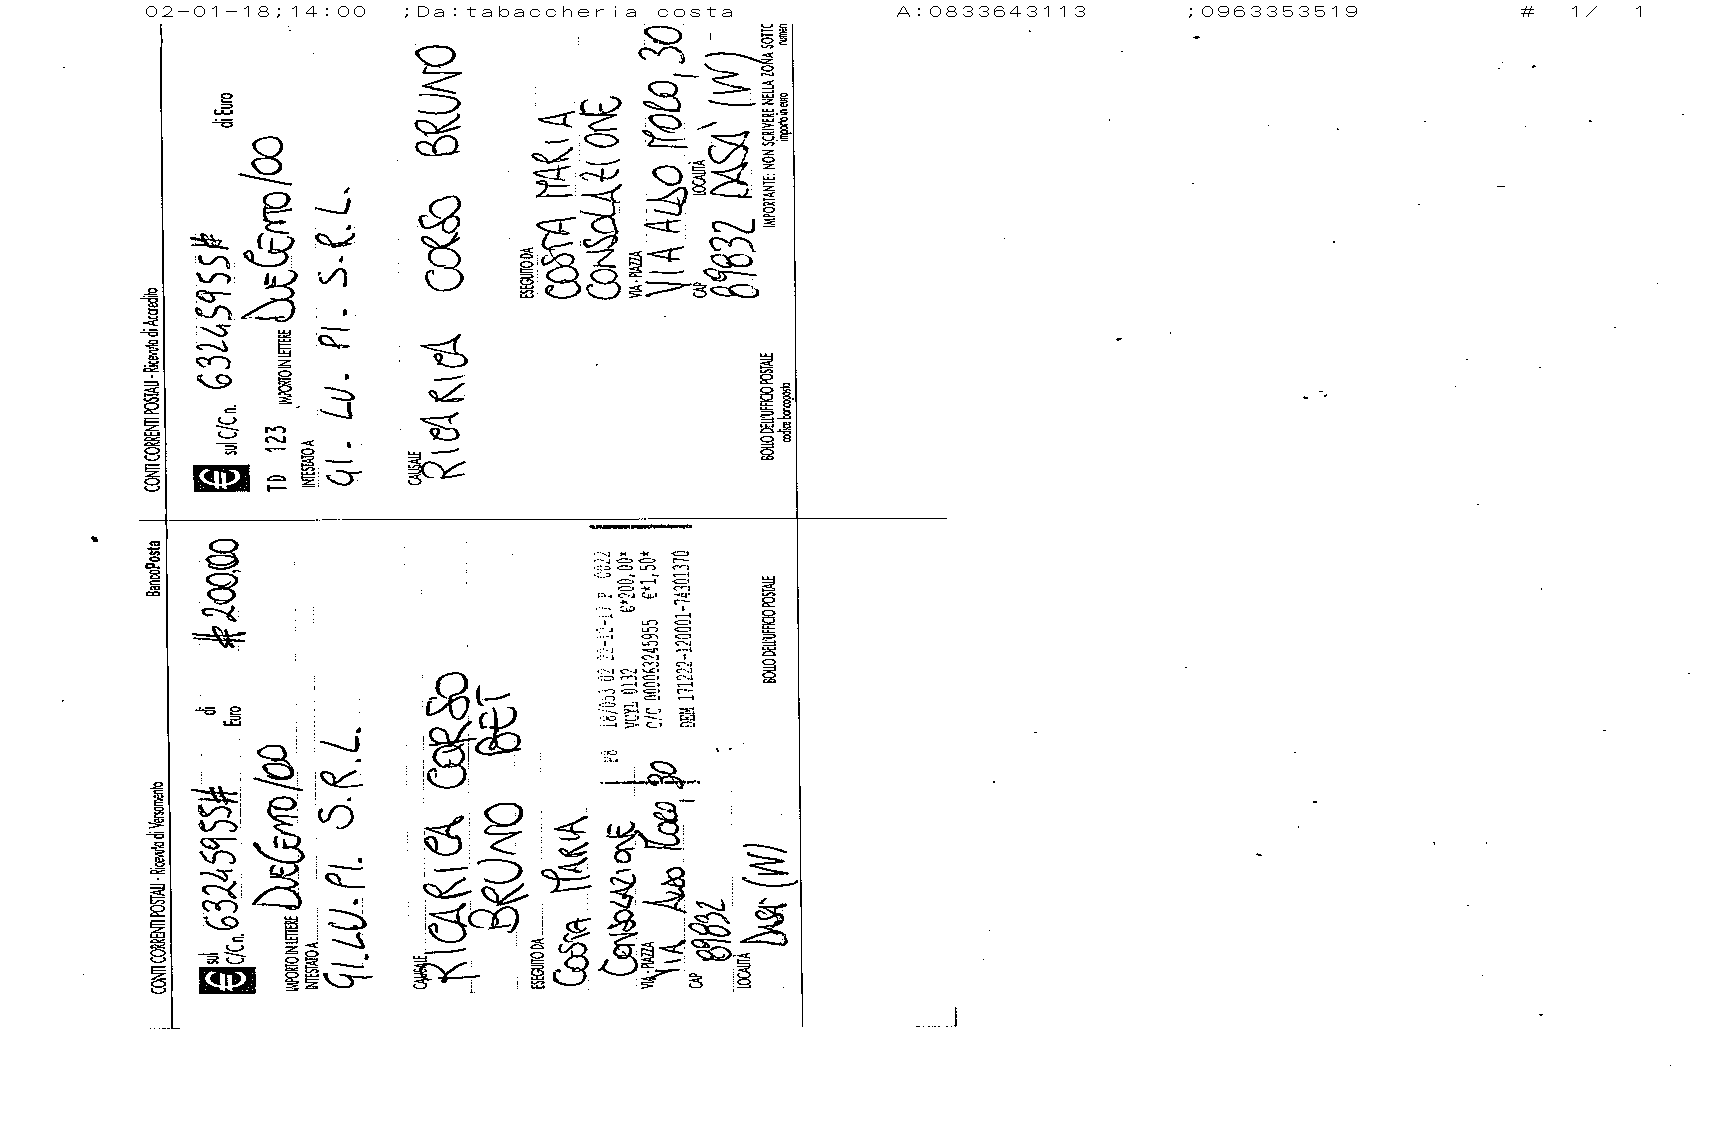 02-01-18;14:00 ;Da:tabaccheria costa A:0833643113 ;0963353519 # 1/ 1
CONTI CORRENTI POSTALI - Ricevuta di Versamento BancoPosta
€ sul C/C n. 63245955# di Euro #200,00
IMPORTO IN LETTERE DUECENTO/00
INTESTATO A
GI.LU.PI. S.R.L.
CAUSALE
RICARICA CORSO
BRUNO BET
ESEGUITO DA
COSTA MARIA
CONSOLAZIONE
VIA - PIAZZA
VIA ALDO MORO, 30
CAP
89832
LOCALITÀ
DASÀ (VV)
18/053 02 22-12-17 P 0022
VCYL 0132 €*200,00*
C/C 000063245955 €*1,50*
DEM 171222-120001-74301370
BOLLO DELL'UFFICIO POSTALE
CONTI CORRENTI POSTALI - Ricevuta di Accredito
€ sul C/C n. 63245955# di Euro
TD 123 IMPORTO IN LETTERE DUECENTO/00
INTESTATO A
GI. LU. PI. S.R.L.
CAUSALE
RICARICA CORSO BRUNO
ESEGUITO DA
COSTA MARIA
CONSOLAZIONE
VIA - PIAZZA
VIA ALDO MORO, 30
CAP LOCALITÀ
89832 DASÀ (VV)
BOLLO DELL'UFFICIO POSTALE
codice bancoposta
IMPORTANTE: NON SCRIVERE NELLA ZONA SOTTO
importo in euro numero